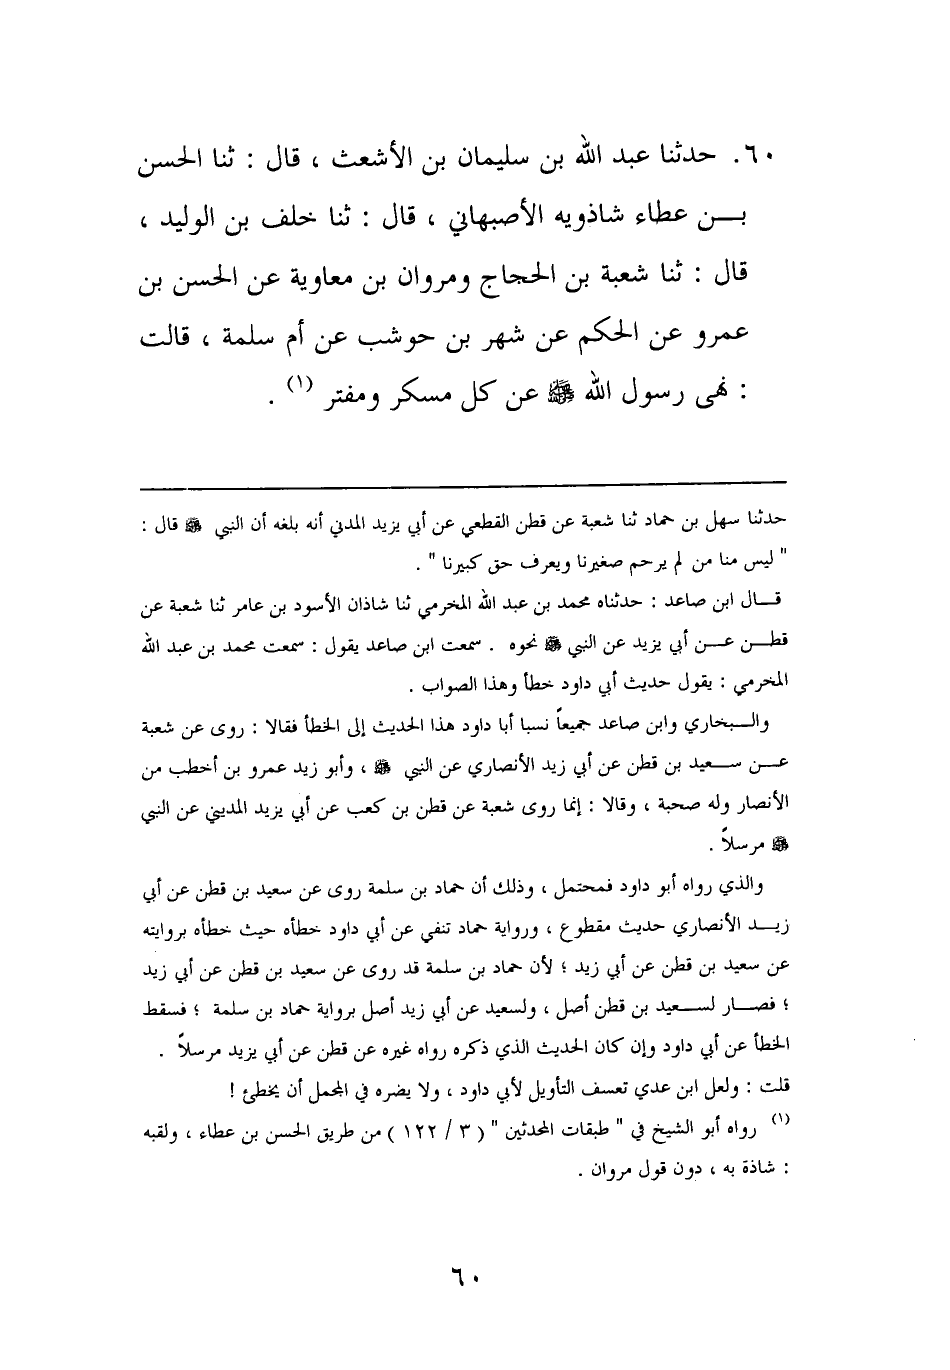 ٦٠. حدثنا عبد الله بن سليمان بن الأشعث ، قال : ثنا الحسن
بـــن عطاء شاذويه الأصبهاني ، قال : ثنا خلف بن الوليد ،
قال : ثنا شعبة بن الحجاج ومروان بن معاوية عن الحسن بن
عمرو عن الحكم عن شهر بن حوشب عن أم سلمة ، قالت
: نهى رسول الله ﷺ عن كل مسكر ومفتر (١) .
حدثنا سهل بن حماد ثنا شعبة عن قطن القطعي عن أبي يزيد المدني أنه بلغه أن النبي ﷺ قال :
" ليس منا من لم يرحم صغيرنا ويعرف حق كبيرنا " .
قـــال ابن صاعد : حدثناه محمد بن عبد الله المخرمي ثنا شاذان الأسود بن عامر ثنا شعبة عن
قطـــن عـــن أبي يزيد عن النبي ﷺ نحوه . سمعت ابن صاعد يقول : سمعت محمد بن عبد الله
المخرمي : يقول حديث أبي داود خطأ وهذا الصواب .
والـــبخاري وابن صاعد جميعاً نسبا أبا داود هذا الحديث إلى الخطأ فقالا : روى عن شعبة
عـــن ســـعيد بن قطن عن أبي زيد الأنصاري عن النبي ﷺ ، وأبو زيد عمرو بن أخطب من
الأنصار وله صحبة ، وقالا : إنما روى شعبة عن قطن بن كعب عن أبي يزيد المديني عن النبي
ﷺ مرسلاً .
والذي رواه أبو داود فمحتمل ، وذلك أن حماد بن سلمة روى عن سعيد بن قطن عن أبي
زيـــد الأنصاري حديث مقطوع ، ورواية حماد تنفي عن أبي داود خطأه حيث خطأه بروايته
عن سعيد بن قطن عن أبي زيد ؛ لأن حماد بن سلمة قد روى عن سعيد بن قطن عن أبي زيد
؛ فصـــار لســـعيد بن قطن أصل ، ولسعيد عن أبي زيد أصل برواية حماد بن سلمة ؛ فسقط
الخطأ عن أبي داود وإن كان الحديث الذي ذكره رواه غيره عن قطن عن أبي يزيد مرسلاً .
قلت : ولعل ابن عدي تعسف التأويل لأبي داود ، ولا يضره في المجمل أن يخطئ !
(١) رواه أبو الشيخ في " طبقات المحدثين " ( ٣ / ١٢٢ ) من طريق الحسن بن عطاء ، ولقبه
: شاذة به ، دون قول مروان .
٦٠